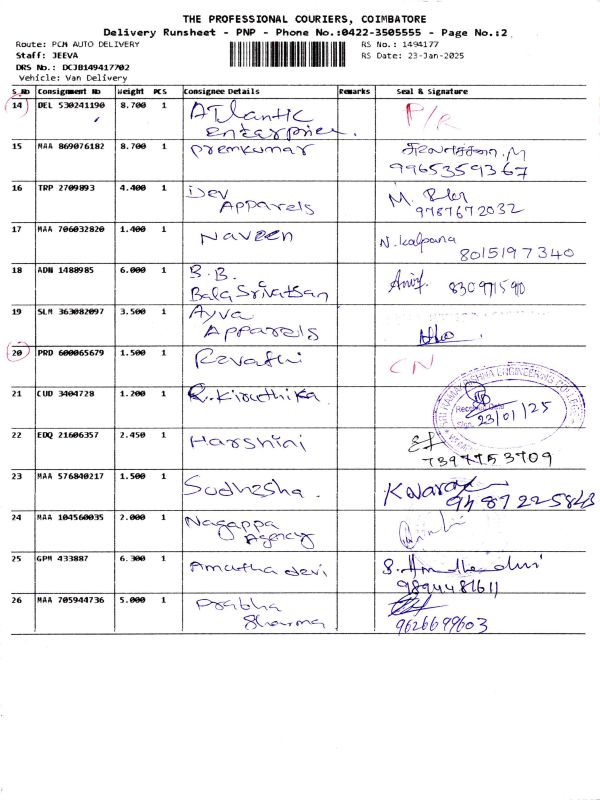 THE PROFESSIONAL COURIERS, COIMBATORE
Delivery Runsheet - PNP - Phone No.:0422-3505555 - Page No.:2
Route: PCM AUTO DELIVERY
RS No.: 1494177
Staff: JEEVA
RS Date: 23-Jan-2025
DRS No.: DCJB149417702
Vehicle: Van Delivery
S.No Consignment No Weight PCS Consignee Details Remarks Seal & Signature
14 DEL 530241190 8.700 1 Atlantic P/R
Enterprice.
15 MAA 869076182 8.700 1 premkumar
9965359367
16 TRP 2709893 4.400 1 Dev
Apparels 9787672032
17 MAA 706032820 1.400 1 Naveen N. Kalpana
8015197340
18 ADN 1488985 6.000 1 B.B.
Bala Srivatsan 830971590
19 SLM 363082097 3.500 1 Ayva
Apparels
20 PRD 600065679 1.500 1 Revathi CN
21 CUD 3404728 1.200 1 R. Kiruthika
SRI RAMAKRISHNA ENGINEERING COLLEGE
23/01/25
22 EDQ 21606357 2.450 1 Harshini
7397753709
23 MAA 576840217 1.500 1 Sudhesha.
24 MAA 104560035 2.000 1 Nagappa
Agency
25 GPM 433887 6.300 1 Amutha devi
9894481611
26 MAA 705944736 5.000 1 Prabha
Sharma 9626699603